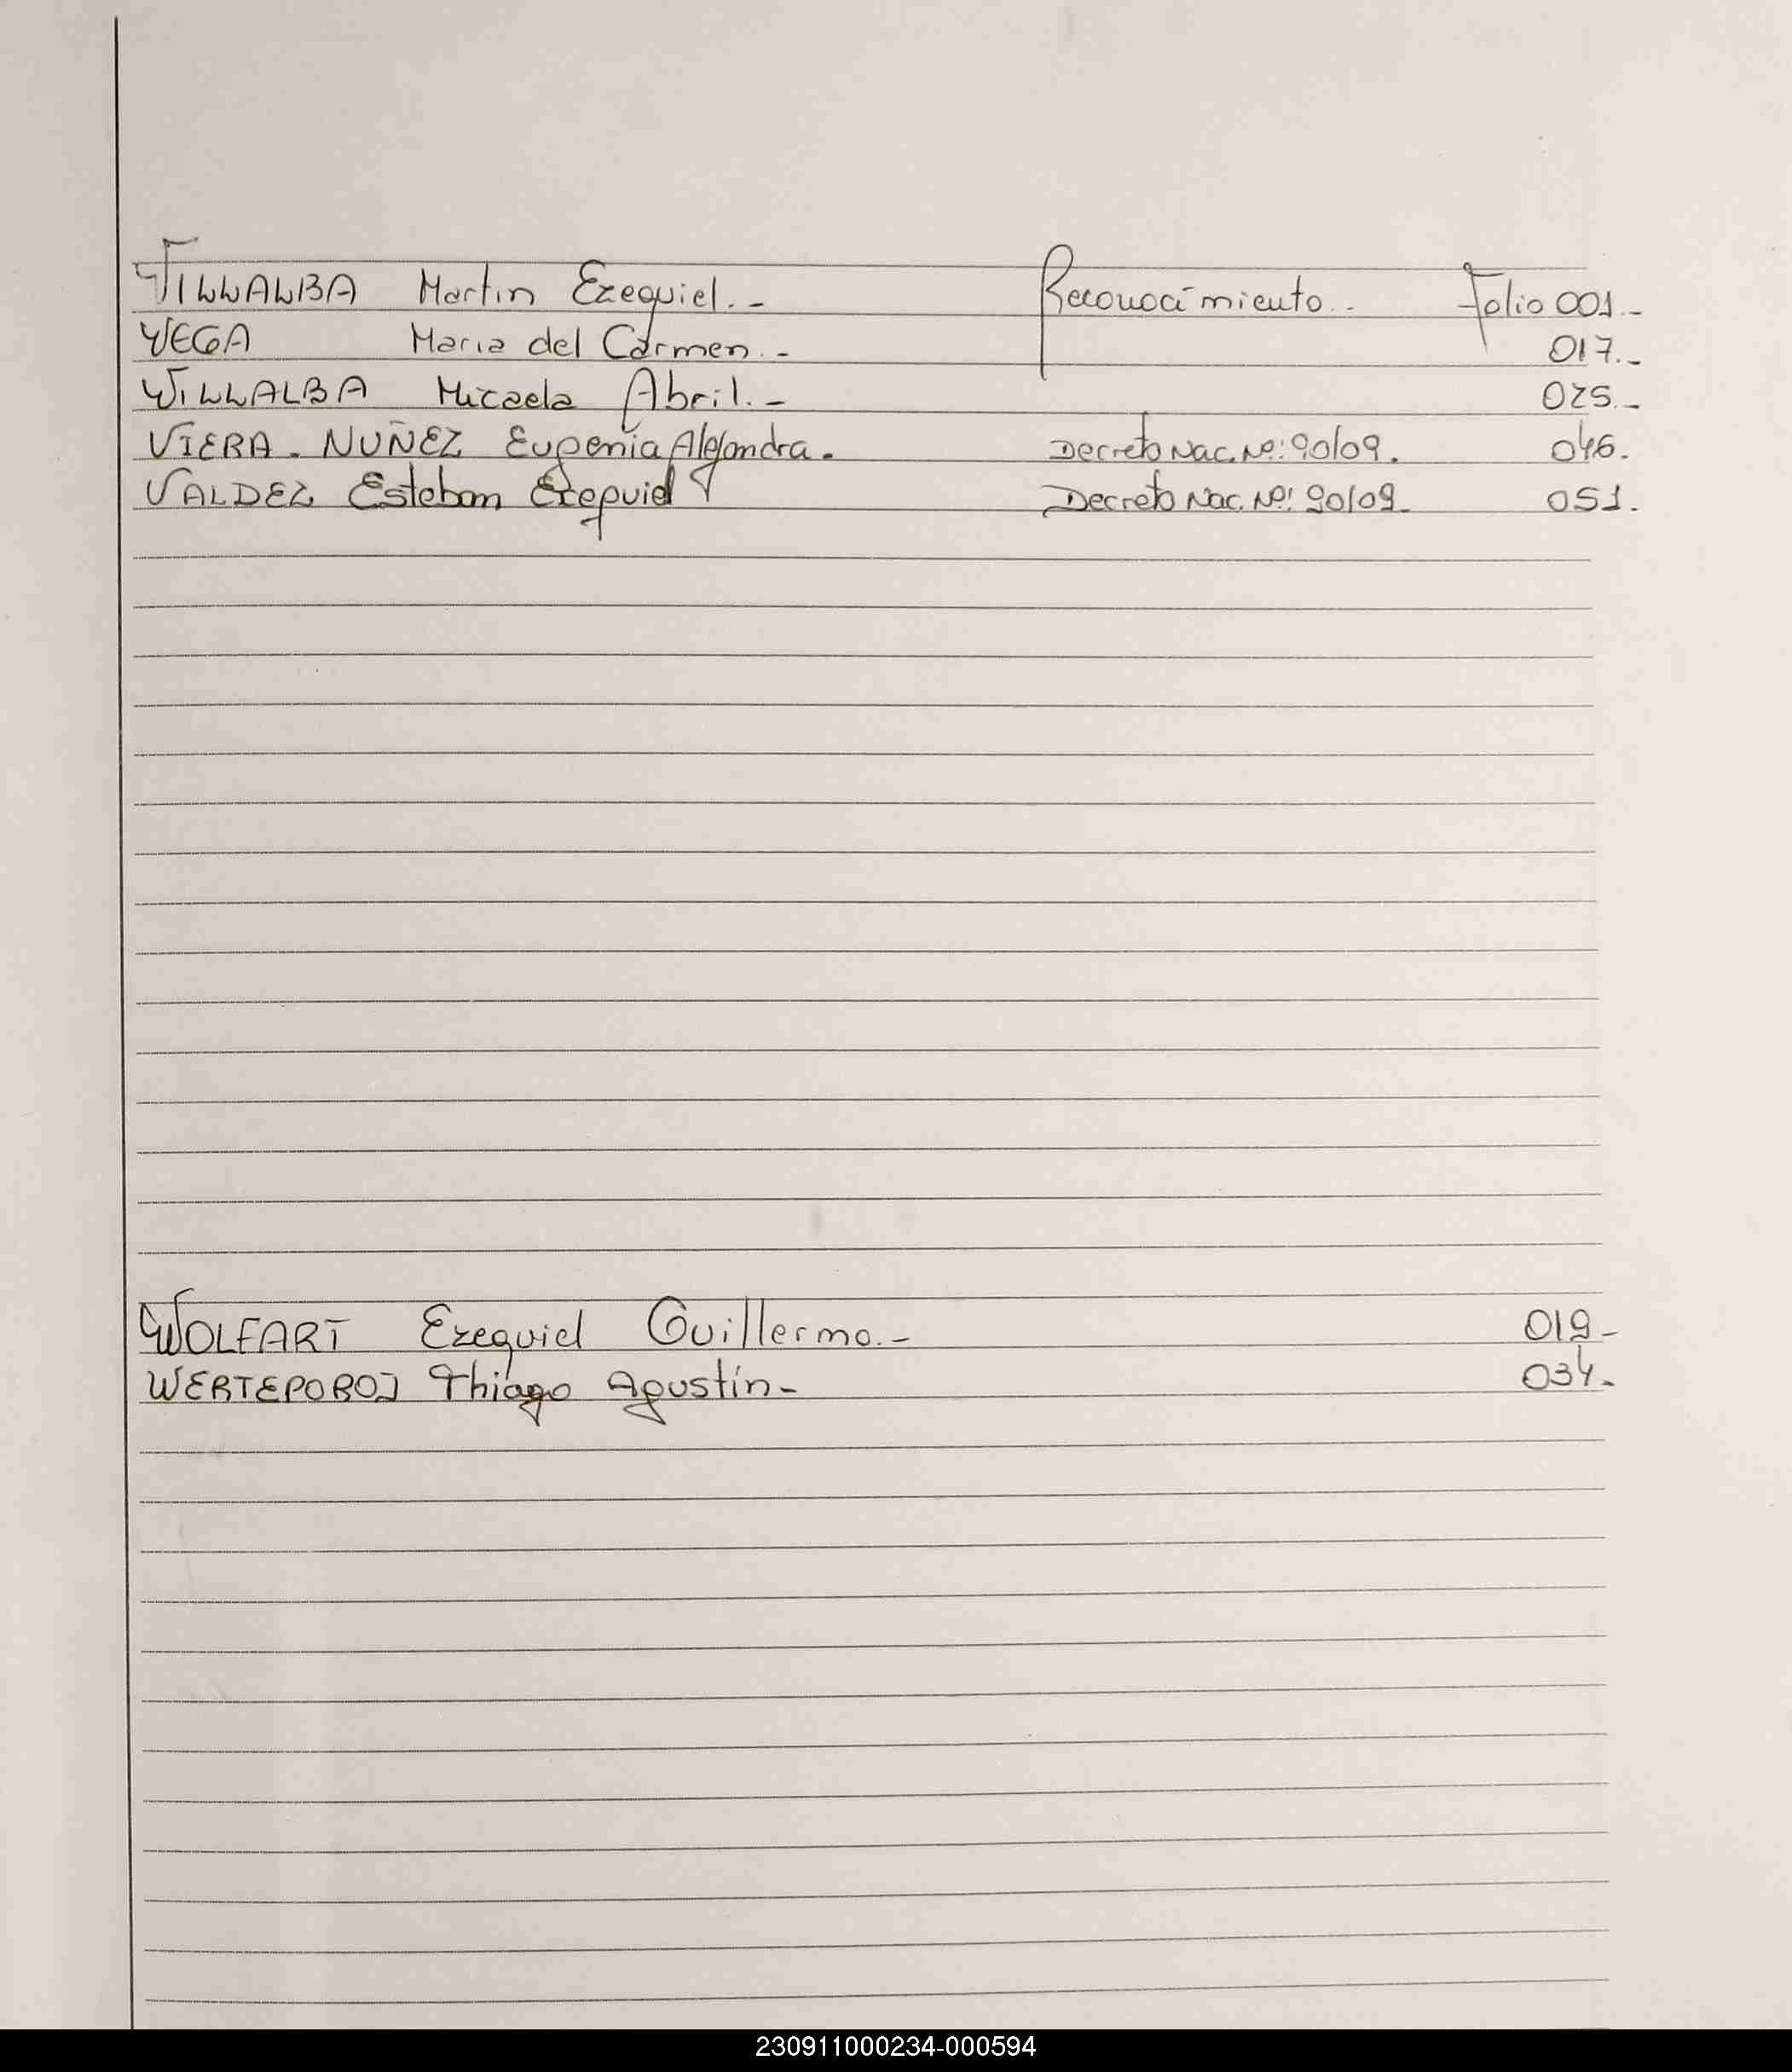 VILLALBA Martin Ezequiel.- Reconocimiento.. Folio 001.-
VEGA Maria del Carmen.- 017.-
VILLALBA Micaela Abril.- 025.-
VIERA. NUÑEZ Eugenia Alejandra. Decreto Nac. Nº: 90/09. 046.
VALDEZ Esteban Ezequiel Decreto Nac. Nº: 90/09. 051.
WOLFART Ezequiel Guillermo.- 019-
WERTEPOROJ Thiago Agustín- 034.
230911000234-000594